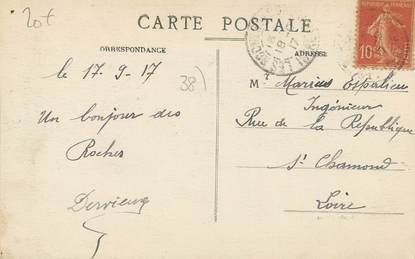 20f
CARTE POSTALE
CORRESPONDANCE
ADRESSE
10
le 17-9-17
38)
Un bonjour des
Roches
Dervieux
M. Marius Espalieu
Ingénieur
Rue de la République
St Chamond
Loire